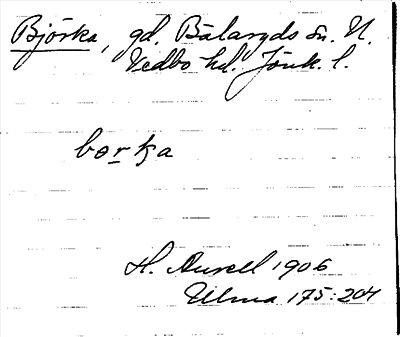 Björka, gd. Bälaryds sn. N.
Vedbo hd. Jönk. l.
borka
H. Aurell 1906
Ulma 175:204